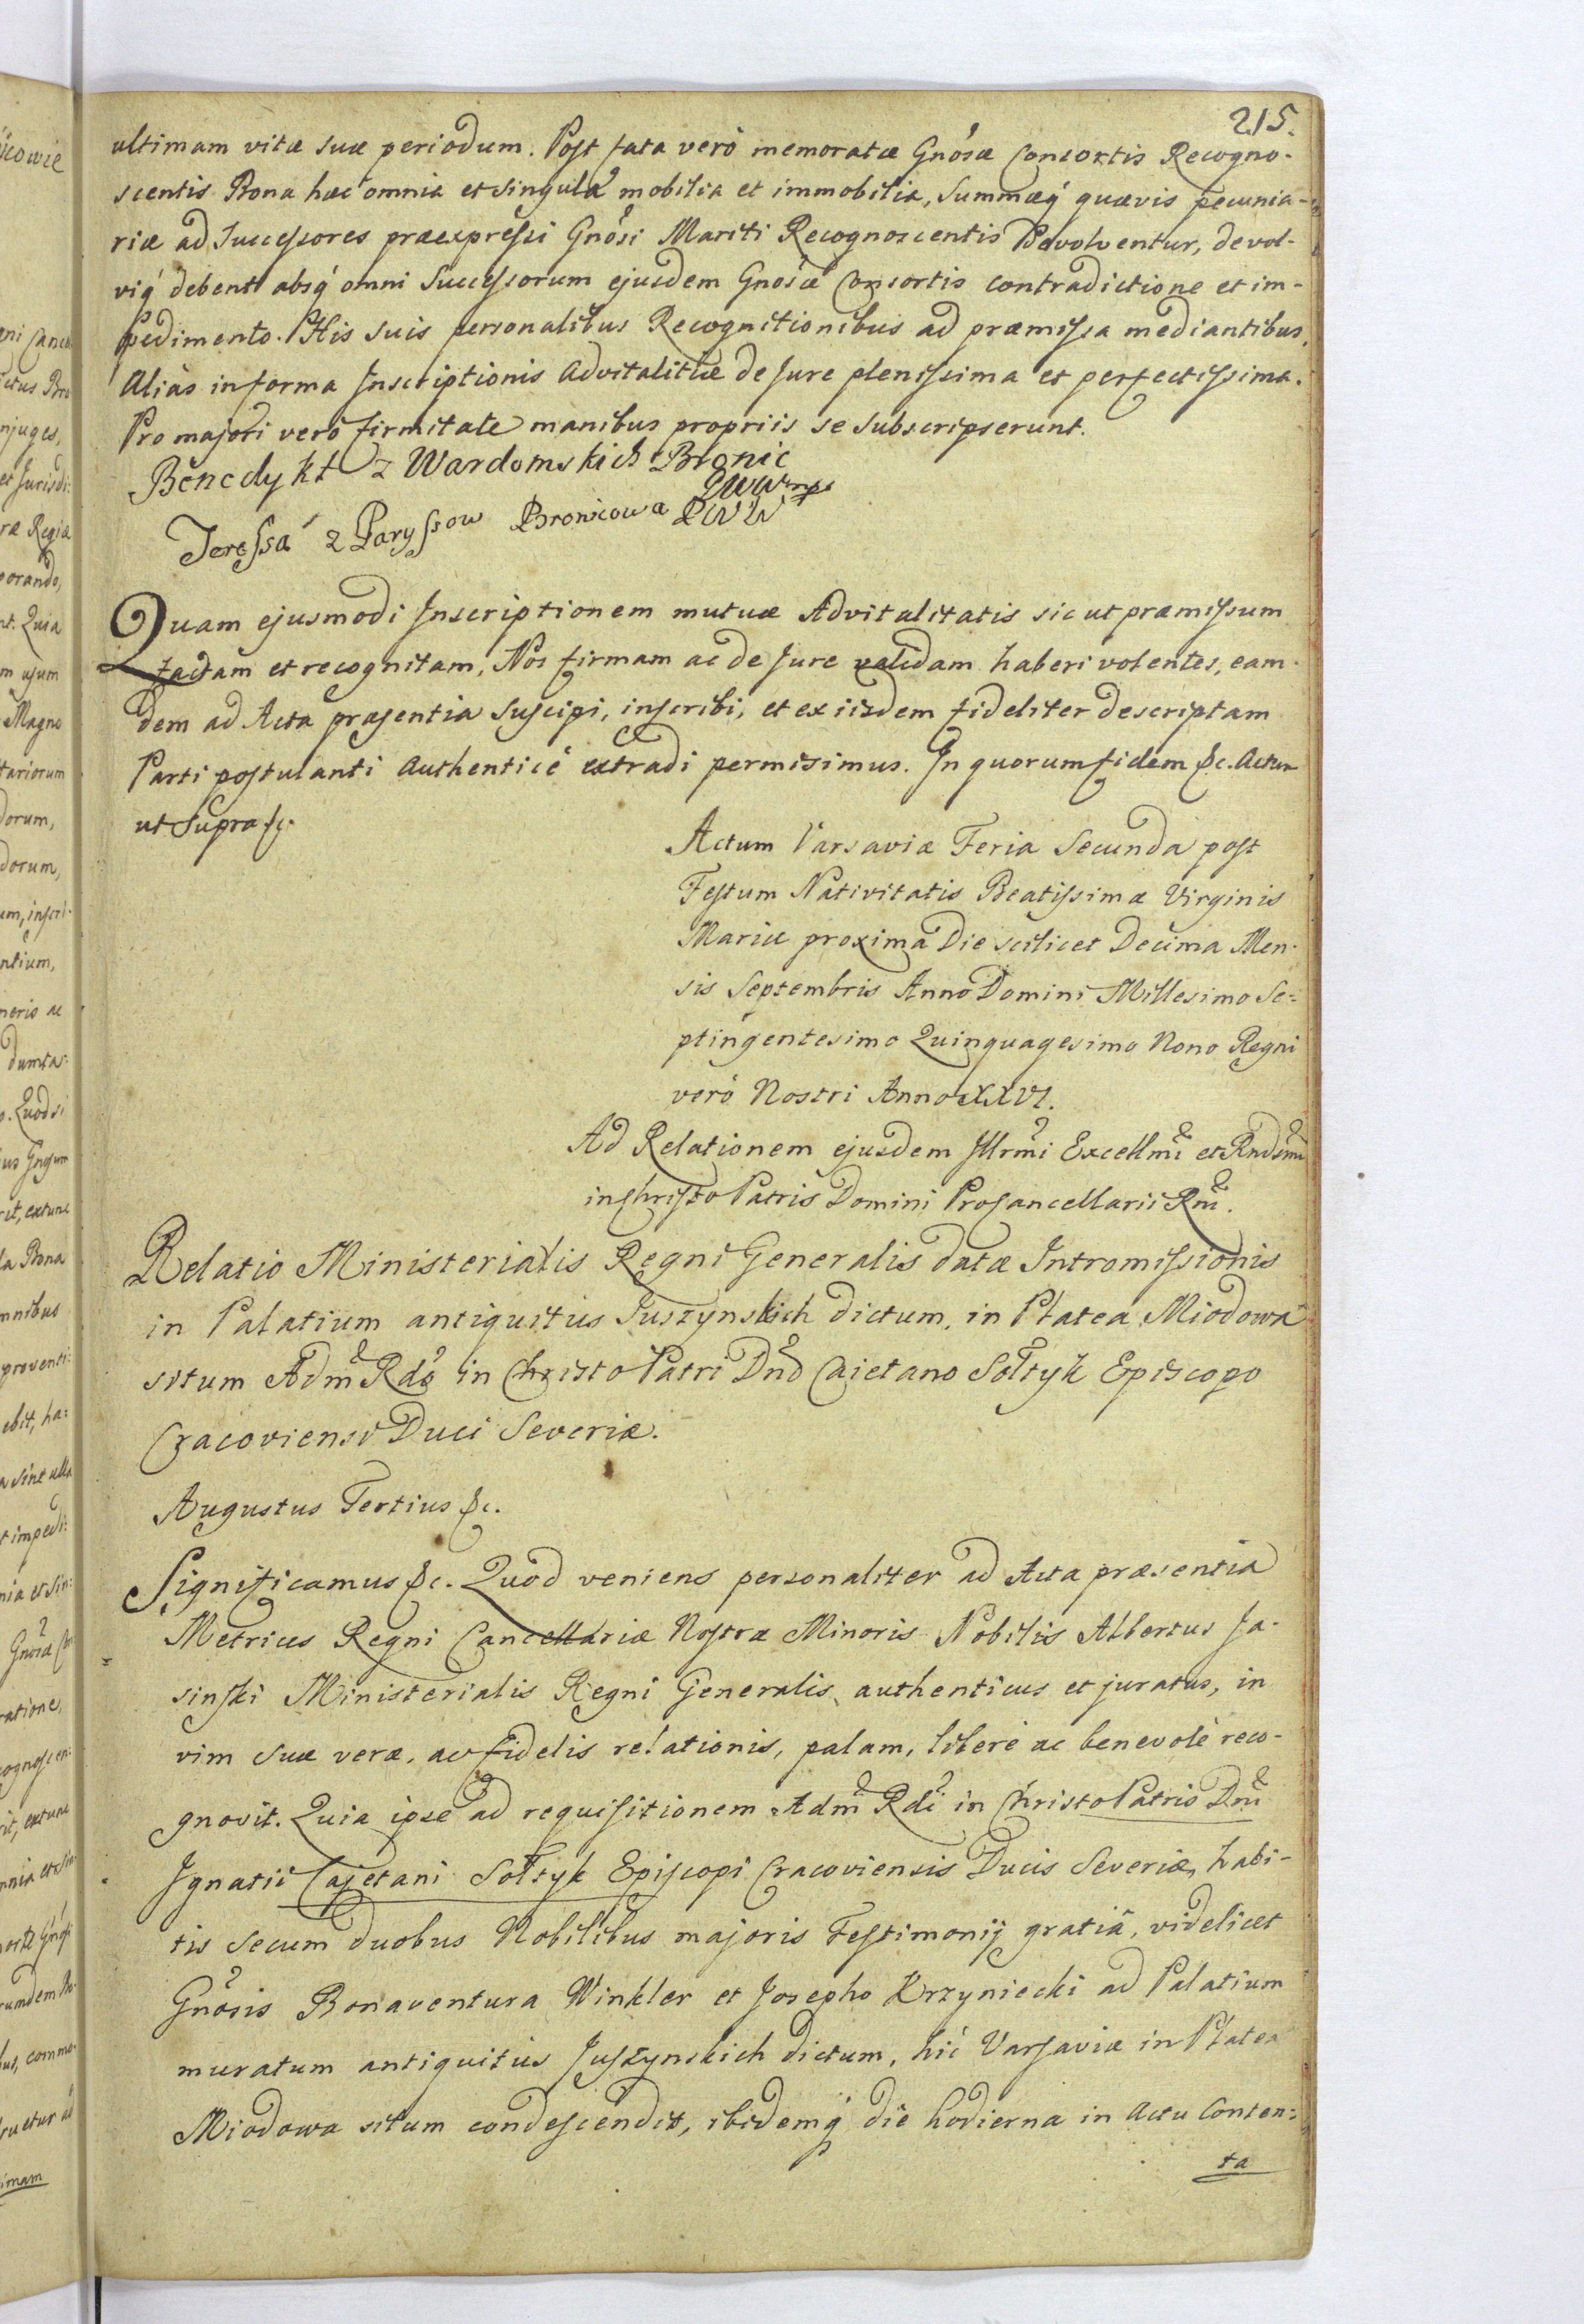 215.
ultimam vitæ suæ periodum. Post fata verò memoratæ Gnosæ Consortis Recogno-
scentis Bona hæc omnia et singula mobilia et immobilia, Summæq́ quævis pecunia-
riæ ad Successores præexpressi Gnosi Mariti Recognoscentis Devolventur, devol-
viq́ debent absq́ omni Successorum ejusdem Gnosæ Consortis contradictione et im-
pedimento. His suis personalibus Recognitionibus ad præmissa mediantibus,
Aliàs in forma Inscriptionis Advitalitiæ de Jure plenissima et perfectissima.
Pro majori verò firmitate manibus propriis se subscripserunt.
Benedykt z Wardomskich Bronic
Teressa z Paryssow Bronicowa
Quam ejusmodi Inscriptionem mutuæ Advitalitatis sic ut præmissum
factam et recognitam, Nos firmam ac de Jure validam haberi volentes, eam-
dem ad Acta præsentia suscipi, inscribi, et ex iisdem fideliter descriptam
Parti postulanti Authenticè extradi permisimus. In quorum fidem &c. Actum
ut Supra &c.
Actum Varsaviæ Feria Secunda post
Festum Nativitatis Beatissimæ Virginis
Mariæ proxima Die scilicet Decima Men-
sis Septembris Anno Domini Millesimo Se=
ptingentesimo Quinquagesimo Nono Regni
verò Nostri Anno XXVI.
Ad Relationem ejusdem Illrmi Excellmi et Rndsmi
in Christo Patris Domini Procancellarii Rni.
Relatio Ministerialis Regni Generalis datæ Intromissionis
in Palatium antiquitus Juszynskich dictum, in Platea Miodowa
situm Adm Rdo in Christo Patri Dno Caietano Sołtyk Episcopo
Cracoviensi Duci Severiæ.
Augustus Tertius &c.
Significamus &c. Quod veniens personaliter ad Acta præsentia
Metrices Regni Cancellariæ Nostræ Minoris Nobilis Albertus Ja-
sinski Ministerialis Regni Generalis, authenticus et juratus, in
vim suæ veræ, ac fidelis relationis, palam, liberè ac benevolè reco-
gnovit. Quia ipse ad requisitionem Adm Rdi in Christo Patris Dni
Ignatii Cajetani Sołtyk Episcopi Cracoviensis Ducis Severiæ, habi-
tis secum duobus Nobilibus majoris Testimonij gratiâ, videlicet
Gnosis Bonaventura Winkler et Josepho Krzyniecki ad Palatium
muratum antiquitus Juszynskich dictum, hic Varsaviæ in Platea
Miodowa situm condescendit, ibidemq́ die hodierna in Actu Conten=
ta